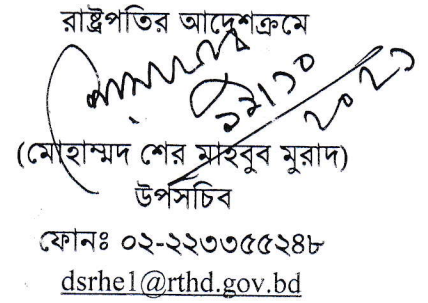 রাষ্ট্রপতির আদেশক্রমে
১২/১০
২০২১
(মোহাম্মদ শের মাহবুব মুরাদ)
উপসচিব
ফোনঃ ০২-২২৩৩৫৫২৪৮
dsrhe1@rthd.gov.bd